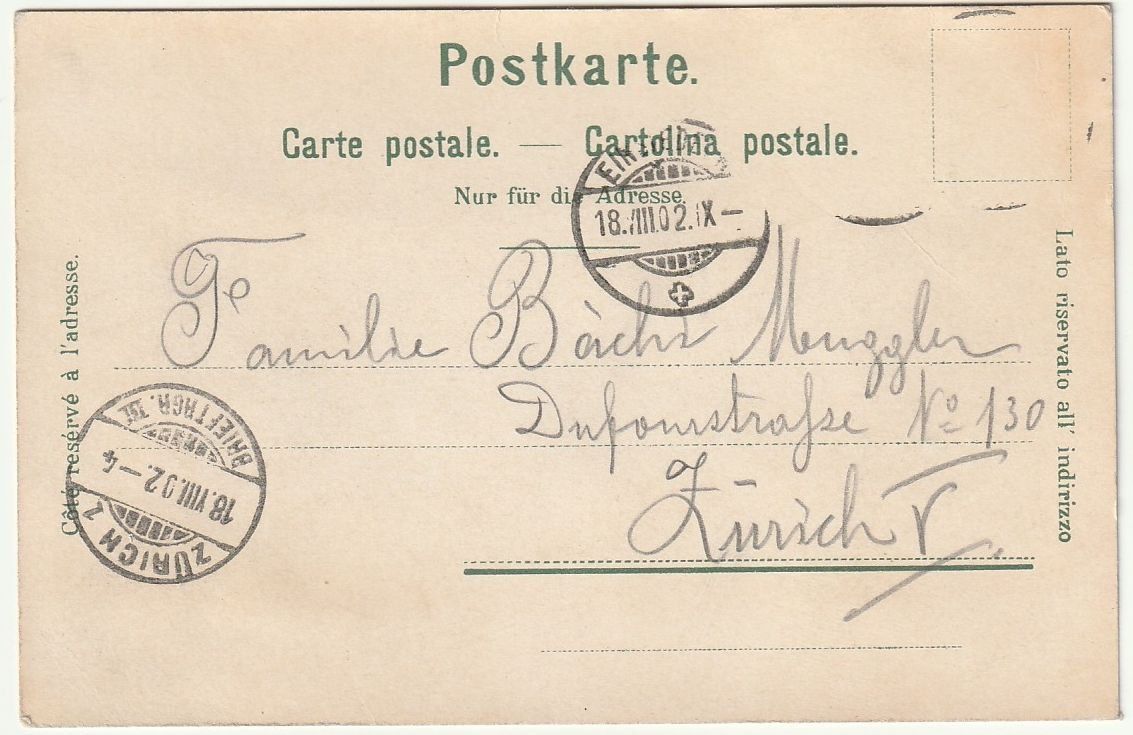 Postkarte.
Carte postale. — Cartolina postale.
Nur für die Adresse.
18.VIII.02.IX—
Côté reservé à l'adresse.
Lato riservato all' indirizzo
Familie Bächi Muggler
Dufourstrasse No 130
Zürich V.
BRIEFTRGR.
18.VIII.02.—4
ZÜRICH